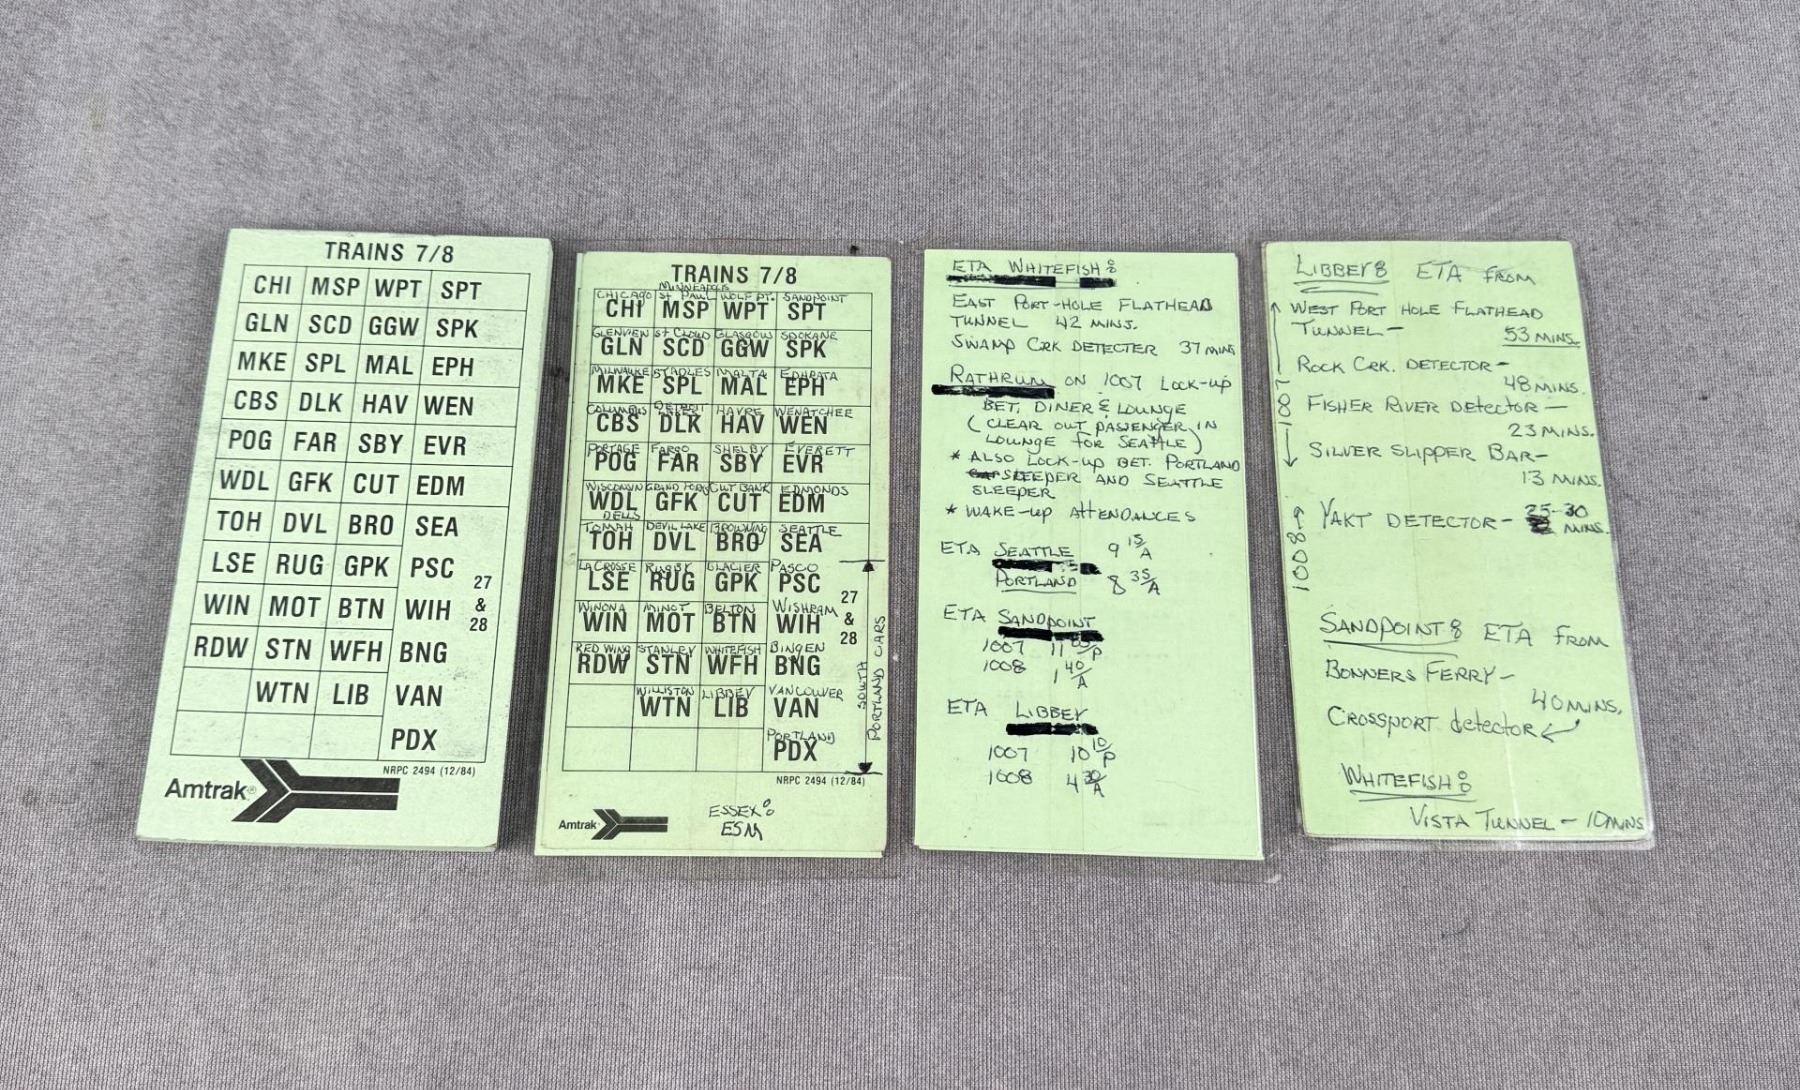 TRAINS 7/8
CHI MSP WPT SPT
GLN SCD GGW SPK
MKE SPL MAL EPH
CBS DLK HAV WEN
POG FAR SBY EVR
WDL GFK CUT EDM
TOH DVL BRO SEA
LSE RUG GPK PSC 27
WIN MOT BTN WIH &
RDW STN WFH BNG 28
WTN LIB VAN
PDX
NRPC 2494 (12/84)
Amtrak®
TRAINS 7/8
MINNEAPOLIS
CHICAGO ST PAUL WOLF PT. SANDPOINT
CHI MSP WPT SPT
GLENVIEW ST CLOUD GLASGOW SPOKANE
GLN SCD GGW SPK
MILWAUKE STAPLES MALTA EPHRATA
MKE SPL MAL EPH
COLUMBUS DETROIT HAVRE WENATCHEE
CBS DLK HAV WEN
PORTAGE FARGO SHELBY EVERETT
POG FAR SBY EVR
WISCONSIN GRAND FORKS CUT BANK EDMONDS
WDL GFK CUT EDM
DELLS
TOMAH DEVIL LAKE BROWNING SEATTLE
TOH DVL BRO SEA
LACROSSE RUGBY GLACIER PASCO
LSE RUG GPK PSC 27
WINONA MINOT BELTON WISHRAM
WIN MOT BTN WIH &
28
RED WING STANLEY WHITEFISH BINGEN
RDW STN WFH BNG
WILLISTON LIBBEY VANCOUVER
WTN LIB VAN
PORTLAND
PDX
SOUTH
PORTLAND CARS
NRPC 2494 (12/84)
Amtrak
ESSEX:
ESM
ETA WHITEFISH:
EAST PORT-HOLE FLATHEAD
TUNNEL 42 MINS.
SWAMP CRK DETECTER 37 MINS
RATHRUM ON 1007 LOCK-UP
BET. DINER & LOUNGE
(CLEAR OUT PASSENGER IN
LOUNGE FOR SEATTLE)
* ALSO LOCK-UP BET. PORTLAND
SLEEPER AND SEATTLE
SLEEPER
* WAKE-UP ATTENDANCES
ETA SEATTLE 9 15/A
PORTLAND 8 35/A
ETA SANDPOINT
1007 11 05/P
1008 1 40/A
ETA LIBBEY
1007 10 10/P
1008 4 30/A
LIBBEY: ETA FROM
WEST PORT HOLE FLATHEAD
TUNNEL - 53 MINS.
ROCK CRK. DETECTOR -
48 MINS.
FISHER RIVER DETECTOR -
23 MINS.
SILVER SLIPPER BAR -
13 MINS.
YAKT DETECTOR - 25-30
MINS.
1007
1008
SANDPOINT: ETA FROM
BONNERS FERRY -
40 MINS.
CROSSPORT detector
WHITEFISH:
VISTA TUNNEL - 10 MINS